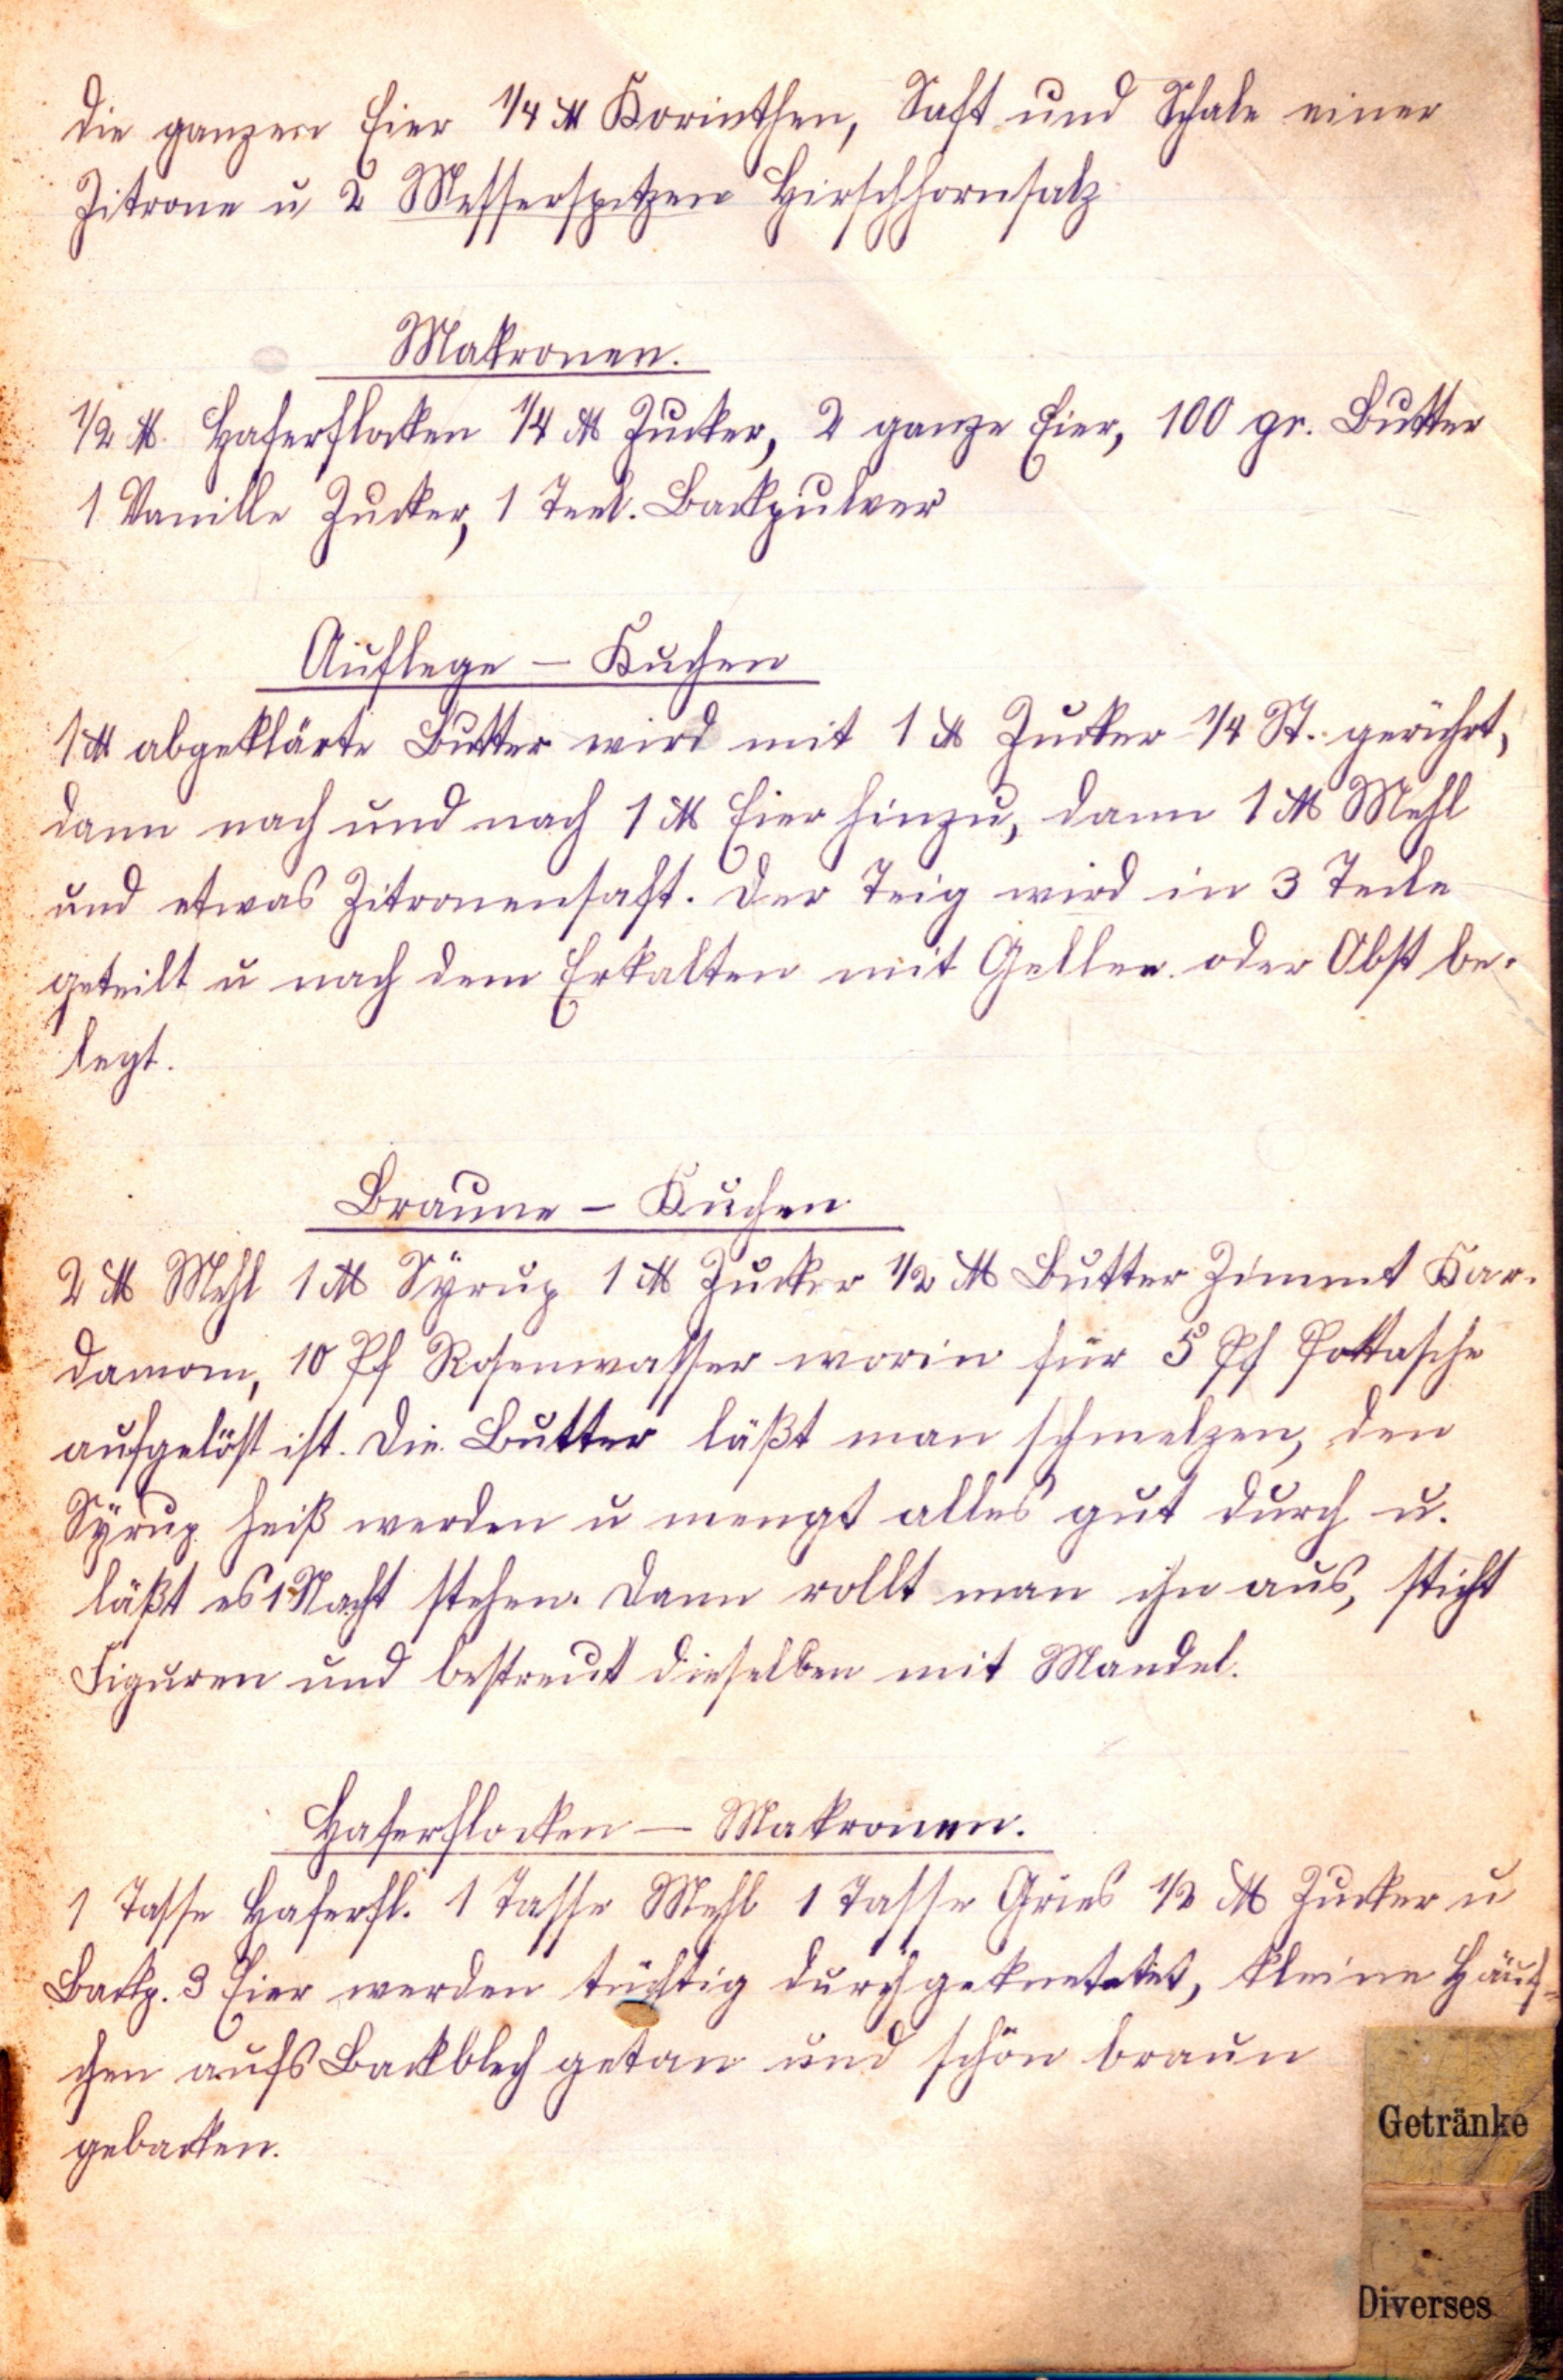 die ganzen Eier 1/4 ℔ Korinthen, Saft und Schale einer
Zitrone u 2 Messerspitzen Hirschhornsalz
Makronen.
1/2 ℔. Haferflocken 1/4 ℔ Zucker, 2 ganze Eier, 100 gr. Butter
1 Vanille Zucker, 1 Teel. Backpulver
Auflege – Kuchen
1 ℔ abgeklärte Butter wird mit 1 ℔ Zucker 1/4 St. gerührt,
dann nach und nach 1 ℔ Eier hinzu, dann 1 ℔ Mehl
und etwas Zitronensaft. Der Teig wird in 3 Teile
geteilt u nach dem Erkalten mit Gellee oder Obst be-
legt.
Braune – Kuchen
2 ℔ Mehl 1 ℔ Syrup 1 ℔ Zucker 1/2 ℔ Butter Zimmt Kar-
damom, 10 Pf Rosenwasser worin für 5 Pf Pottasche
aufgelöst ist. Die Butter läßt man schmelzen, den
Syrup heiß werden u mengt alles gut durch u.
läßt es 1 Nacht stehen. Dann rollt man ihn aus, sticht
Figuren und bestreut dieselben mit Mandel.
Haferflocken – Makronen.
1 Tasse Haferfl. 1 Tasse Mehl 1 Tasse Gries 1/2 ℔ Zucker u
Backp. 3 Eier werden tüchtig durchgeknetetet, kleine Häuf-
chen aufs Backblech getan und schön braun
gebacken.
Getränke
Diverses